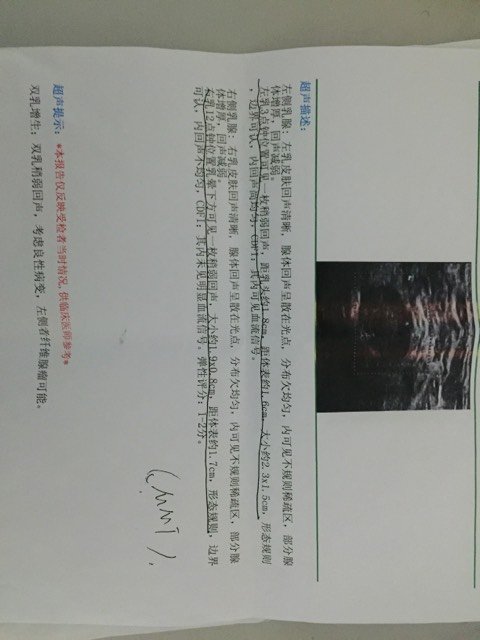 超声描述:
左侧乳腺：左乳皮肤回声清晰，腺体回声呈散在光点，分布欠均匀，内可见不规则稀疏区，部分腺
体增厚，回声减弱。
左乳3点钟位置可见一枚稍弱回声，距乳头约1.8cm，距体表约1.6cm，大小约2.3x1.5cm，形态规则
，边界可认，内回声尚均匀，CDFI：其内可见血流信号。
右侧乳腺：右乳皮肤回声清晰，腺体回声呈散在光点，分布欠均匀，内可见不规则稀疏区，部分腺
体增厚，回声减弱。
右乳12点钟位置乳晕下方可见一枚稍弱回声，大小约1.9x0.8cm，距体表约1.7cm，形态规则，边界
可认，内回声不均匀，CDFI：其内未见明显血流信号。弹性评分：1-2分。
超声提示：*本报告仅反映受检者当时情况，供临床医师参考*
双乳增生；双乳稍弱回声，考虑良性病变，左侧者纤维腺瘤可能。